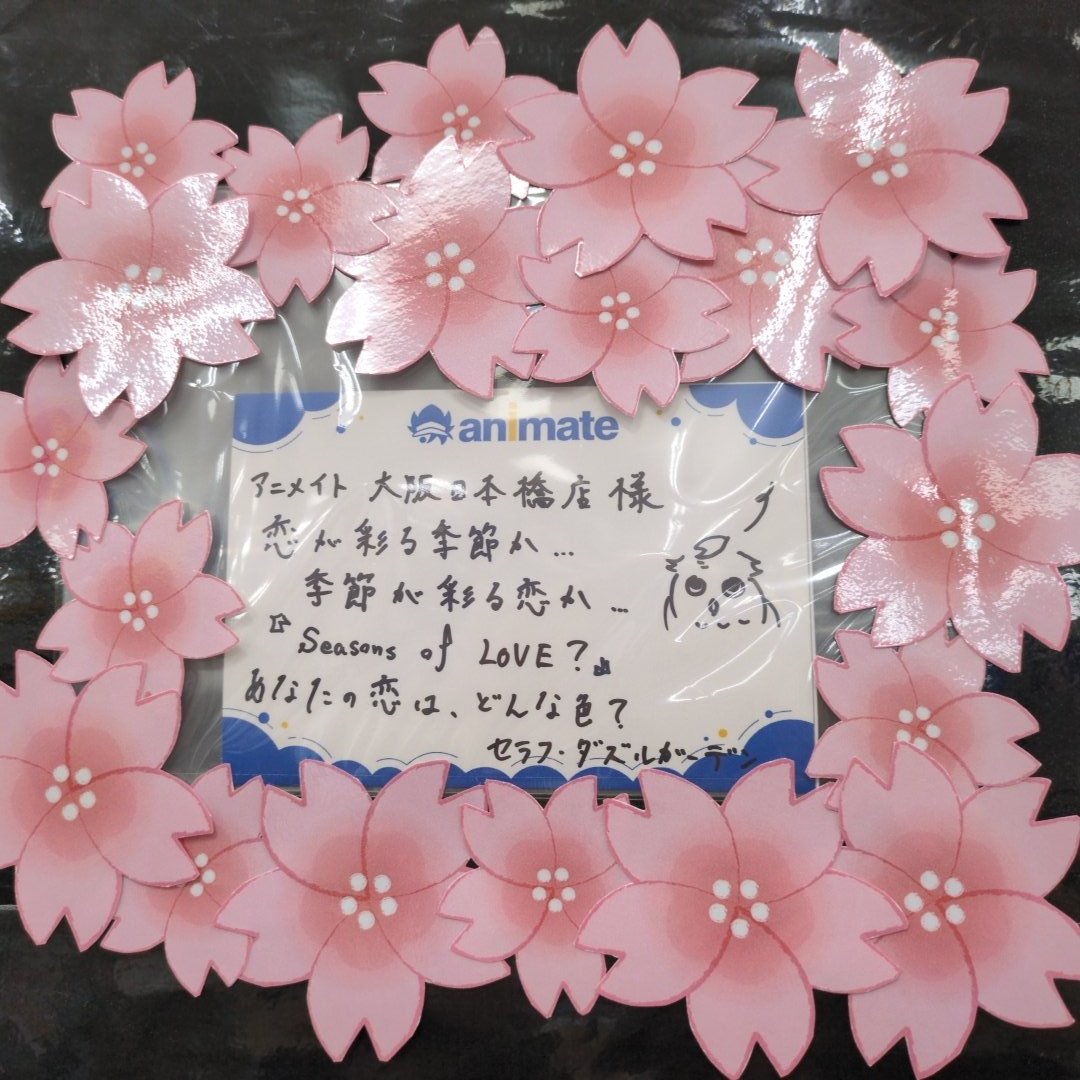 animate
アニメイト 大阪日本橋店 様
恋が彩る季節か…
季節が彩る恋か…
『Seasons of LOVE?』
あなたの恋は、どんな色?
セラフ・ダズルガーデン